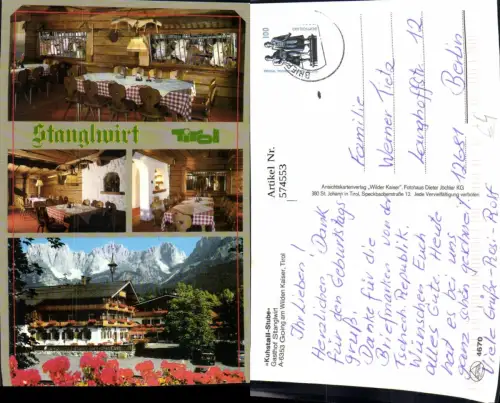 Stanglwirt Tirol
Artikel Nr.
574553
»Kuhstall-Stube«
Gasthof Stanglwirt
A-6353 Going am Wilden Kaiser, Tirol
Ansichtskartenverlag „Wilder Kaiser“, Fotohaus Dieter Jöchler KG
380 St. Johann in Tirol, Speckbacherstraße 13. Jede Vervielfältigung verboten
4670
Ihr Lieben!
Herzlichen Dank
für den Geburtstags-
Danke für die
Briefmarken von der
Tschech. Republik.
Wünschen Euch
alles Gute, Heute
haben wir uns
ganz schön
100
BRIEF
Familie
Werner Tietz
Langhoffstr. 12
12681 Berlin
64